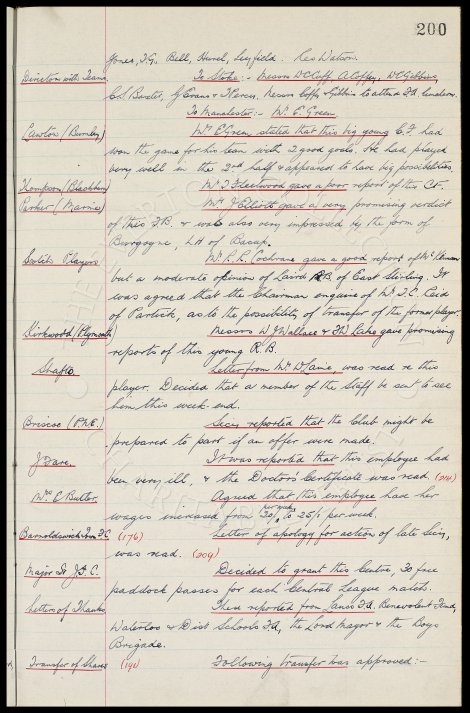 200
Jones, T.G. Bell, Hurel, Leyfield. Res Watson.
Directors with Teams To Stoke:- Messrs W.C. Cuff, A. Coffey, W.C. Gibbins,
C.S. Baxter, J. Evans & Messrs. Cuff & Gibbins to attend F.A. luncheon.
To Manchester:- Mr. E. Green.
Lawton (Burnley) Mr. E. Green, stated that this big young C.F. had
won the game for his team with 2 good goals. He had played
very well in the 2nd half & appeared to have big possibilities.
Thompson (Blackburn) Mr. T. Fleetwood gave a poor report of this CF.
Parker (Marine) Mr. J. Elliott gave a very promising verdict
of this F.B. & was also very impressed by the form of
Burgoyne, LH of Bacup.
Scottish Players Mr. R.R. Cochrane gave a good report of
but a moderate opinion of Laird RB. of East Stirling. It
was agreed that the Chairman enquire of Mr. T.C. Reid
of Partick, as to the possibility of transfer of the former player.
Kirkwood (Plymouth) Messrs W.J. Wallace & Lake gave promising
reports of this young R.B.
Shafto. Letter from Mr. was read re this
player. Decided that a member of the Staff be sent to see
him this week-end.
Briscoe (P.N.E.) Secy reported that the Club might be
prepared to part if an offer were made.
J. Fare. It was reported that this employee had
been very ill, & the Doctor's Certificate was read. (214)
Mrs. E. Butler. Agreed that this employee have her
wages increased from 20/- per week, to 25/- per week.
Barnoldswick Town F.C. (176) Letter of apology for action of late Secy,
was read. (209)
Major St. J.B.C. Decided to grant this Centre 30 free
paddock passes for each Central League match.
Letters of Thanks, These reported from Lancs F.A. Benevolent Fund,
Waterloo & Dist Schools F.A, the Lord Mayor & the Boys
Brigade.
Transfer of Shares (191) Following transfer was approved:-